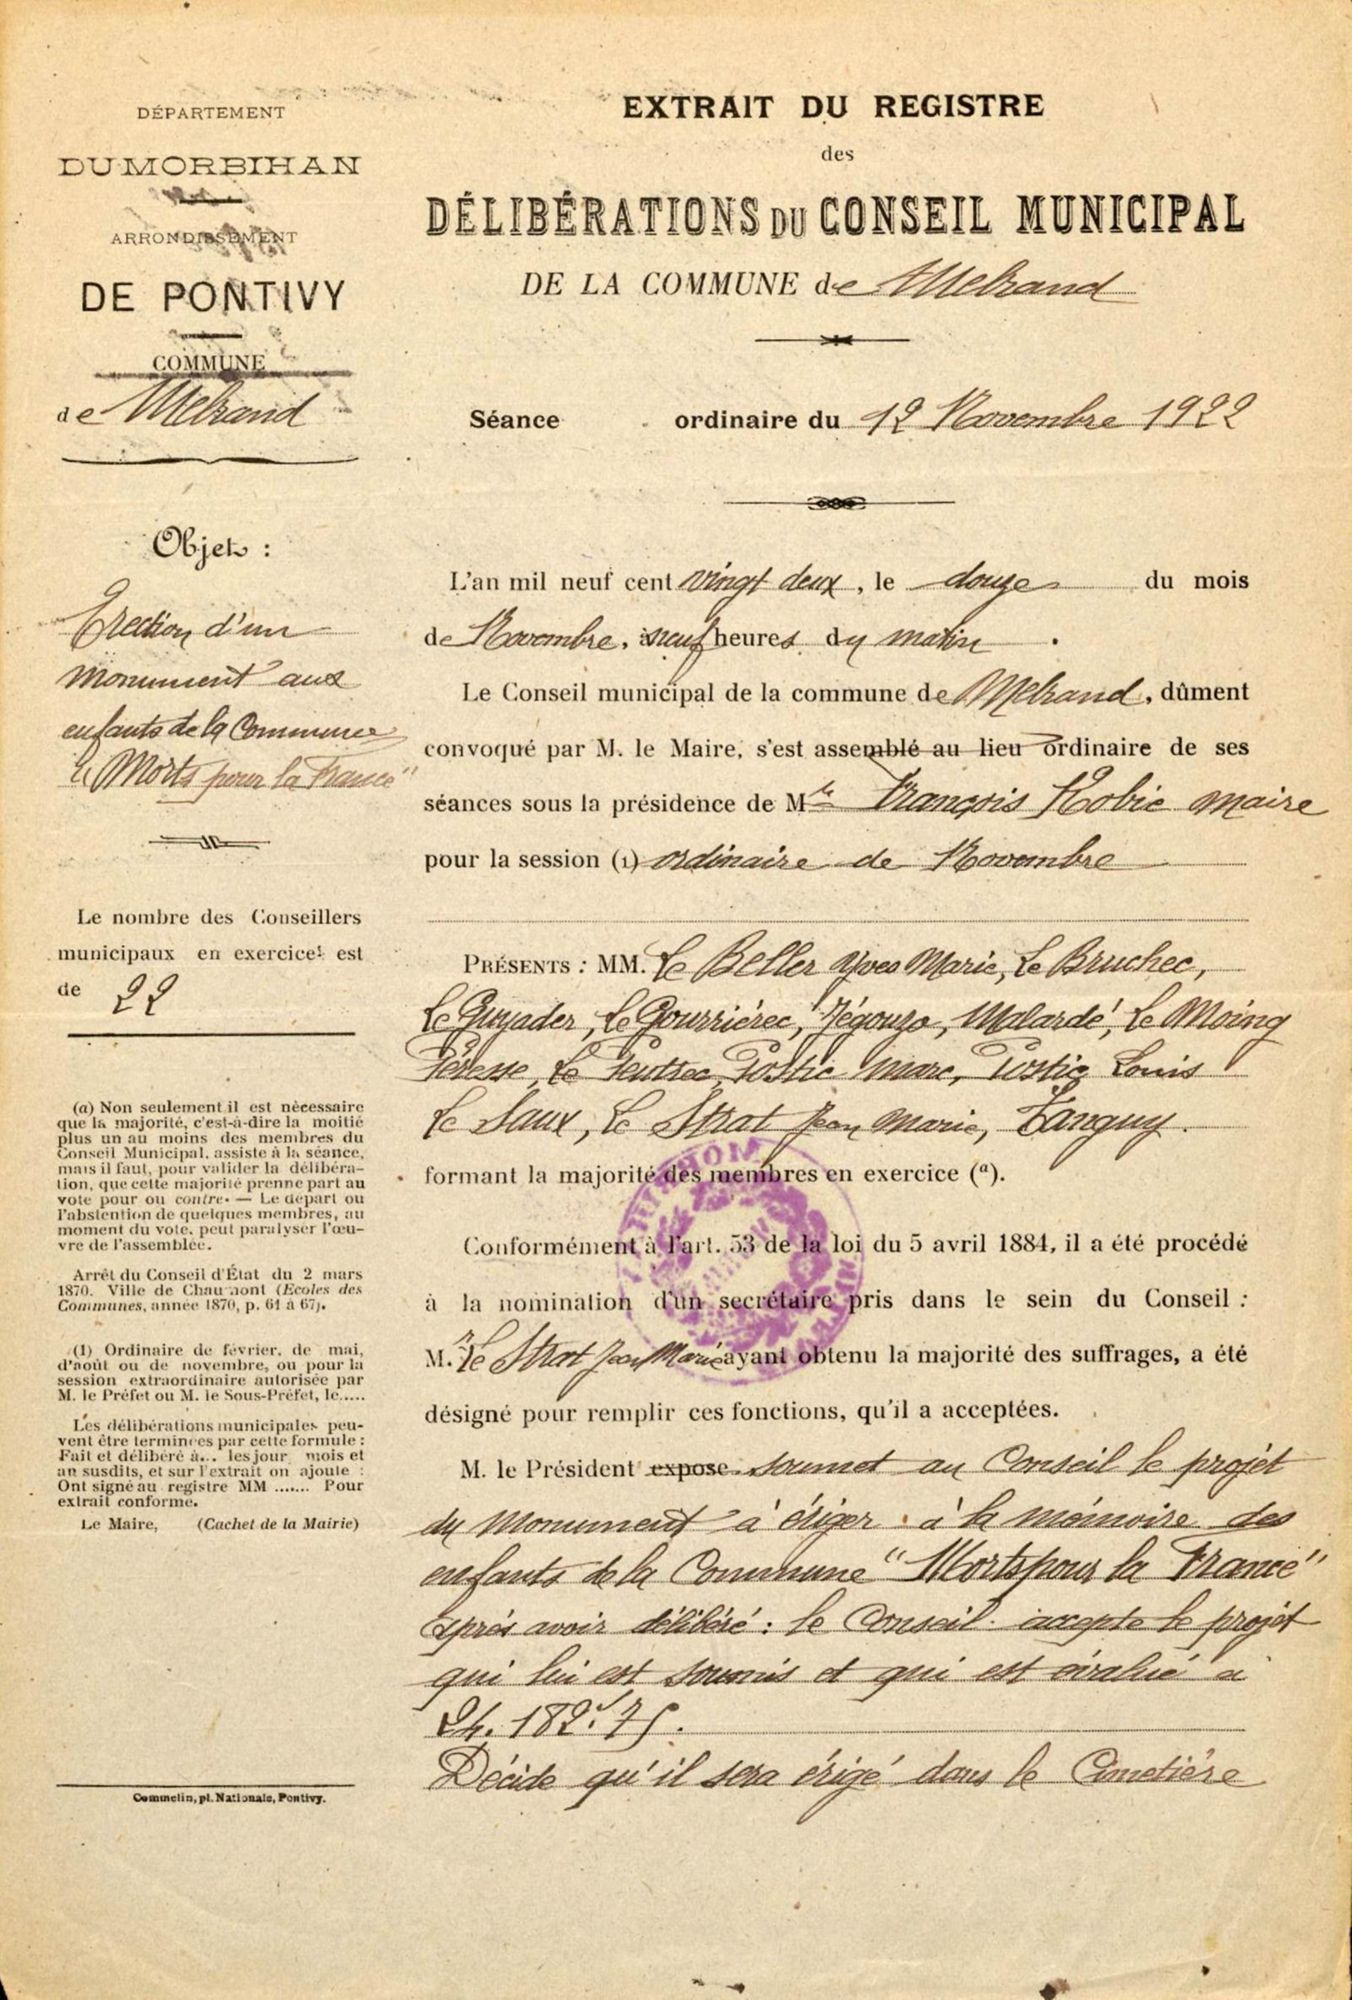 DÉPARTEMENT
DU MORBIHAN
ARRONDISSEMENT
DE PONTIVY
COMMUNE
de Melrand
Objet :
Erection d'un
monument aux
enfants de la Commune
"Morts pour la France"
Le nombre des Conseillers
municipaux en exercice est
de 22
(a) Non seulement il est nécessaire
que la majorité, c'est-à-dire la moitié
plus un au moins des membres du
Conseil Municipal, assiste à la séance,
mais il faut, pour valider la délibéra-
tion, que cette majorité prenne part au
vote pour ou contre. — Le départ ou
l'abstention de quelques membres, au
moment du vote, peut paralyser l'œu-
vre de l'assemblée.
Arrêt du Conseil d'État du 2 mars
1870. Ville de Chaumont (Ecoles des
Communes, année 1870, p. 61 à 67).
(1) Ordinaire de février, de mai,
d'août ou de novembre, ou pour la
session extraordinaire autorisée par
M. le Préfet ou M. le Sous-Préfet, le.....
Les délibérations municipales peu-
vent être terminées par cette formule :
Fait et délibéré à... les jour, mois et
an susdits, et sur l'extrait on ajoute :
Ont signé au registre MM ....... Pour
extrait conforme.
Le Maire, (Cachet de la Mairie)
Commelin, pl. Nationale, Pontivy.
EXTRAIT DU REGISTRE
des
DÉLIBÉRATIONS DU CONSEIL MUNICIPAL
DE LA COMMUNE de Melrand
Séance ordinaire du 12 Novembre 1922
L'an mil neuf cent vingt deux, le douze du mois
de Novembre, à neuf heures du matin.
Le Conseil municipal de la commune de Melrand, dûment
convoqué par M. le Maire, s'est assemblé au lieu ordinaire de ses
séances sous la présidence de Mr François Robic maire
pour la session (1) ordinaire de Novembre
PRÉSENTS : MM. Le Beller Yves Marie, Le Bruchec,
Le Guyader, Le Gourriérec, Jégouzo, Malardé, Le Moing
Péresse, Le Peutrec, Postic Marc, Postic Louis
Le Saux, Le Strat Jean Marie, Tanguy.
formant la majorité des membres en exercice (a).
Conformément à l'art. 53 de la loi du 5 avril 1884, il a été procédé
à la nomination d'un secrétaire pris dans le sein du Conseil :
M. Le Strat Jean Marie ayant obtenu la majorité des suffrages, a été
désigné pour remplir ces fonctions, qu'il a acceptées.
M. le Président expose soumet au Conseil le projet
du Monument à ériger à la mémoire des
enfants de la Commune "Morts pour la France"
après avoir délibéré : le Conseil accepte le projet
qui lui est soumis et qui est évalué à
24.182f.75.
Décide qu'il sera érigé dans le Cimetière
MORBIHAN